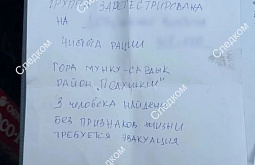 ГРУППА ЗАРЕГЕСТРИРОВАНА
НА
ЧИСТОТА РАЦИИ
ГОРА МУНКУ-САРДЫК
РАЙОН „ПОДУШКИ"
3 ЧЕЛОВЕКА НАЙДЕНЫ
БЕЗ ПРИЗНАКОВ ЖИЗНИ
ТРЕБУЕТСЯ ЭВАКУАЦИЯ
Следком
Следком
Следком
Следком
Следком